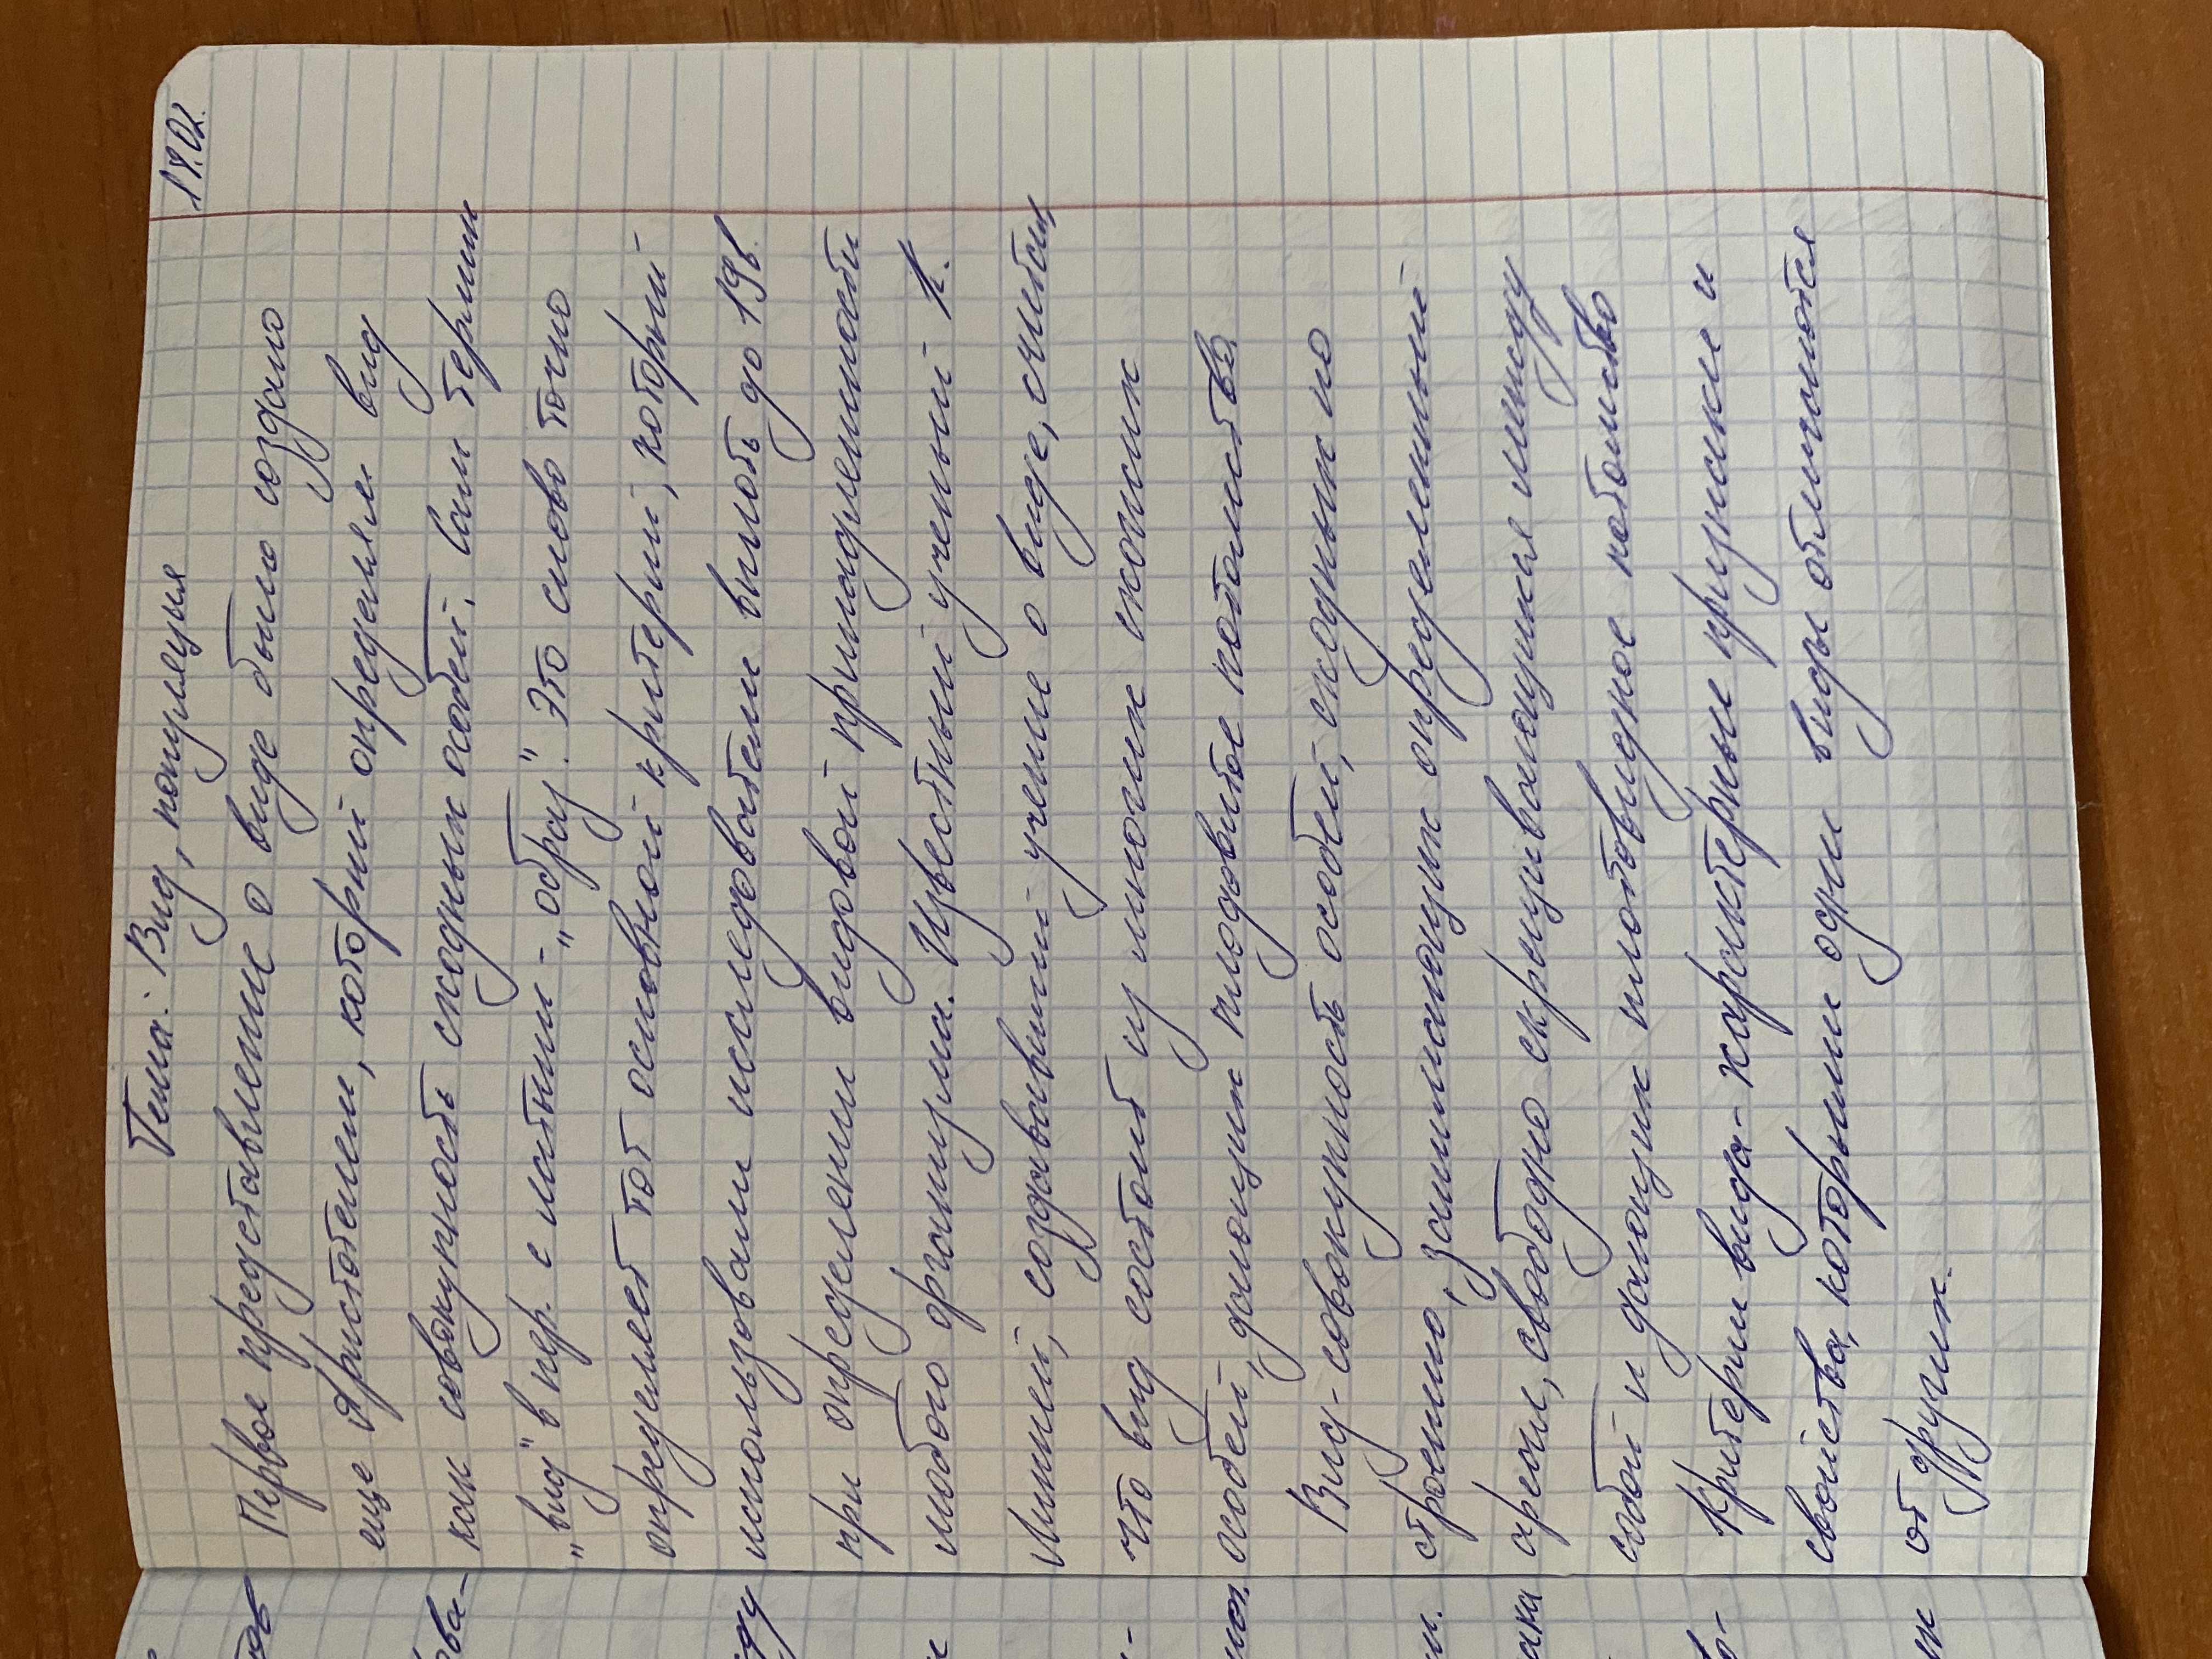 17.02.
Тема: Вид, популяция
Первое представление о виде было создано
еще Аристотелем, который определял вид
как совокупность сходных особей. Сам термин
„вид" в пер. с латыни - „образ". Это слово точно
определяет тот основной критерий, который
использовали исследователи вплоть до 19в.
при определении видовой принадлежности
любого организма. Известный ученый К.
Линней, создавший учение о виде, считал,
что вид состоит из многих схожих
особей, дающих плодовитое потомство.
Вид - совокупность особей, сходных по
строению, занимающих определенный
ареал, свободно скрещивающихся между
собой и дающих плодовидное потомство
Критерии вида - характерные признаки и
свойства, которыми одни виды отличаются
от других.